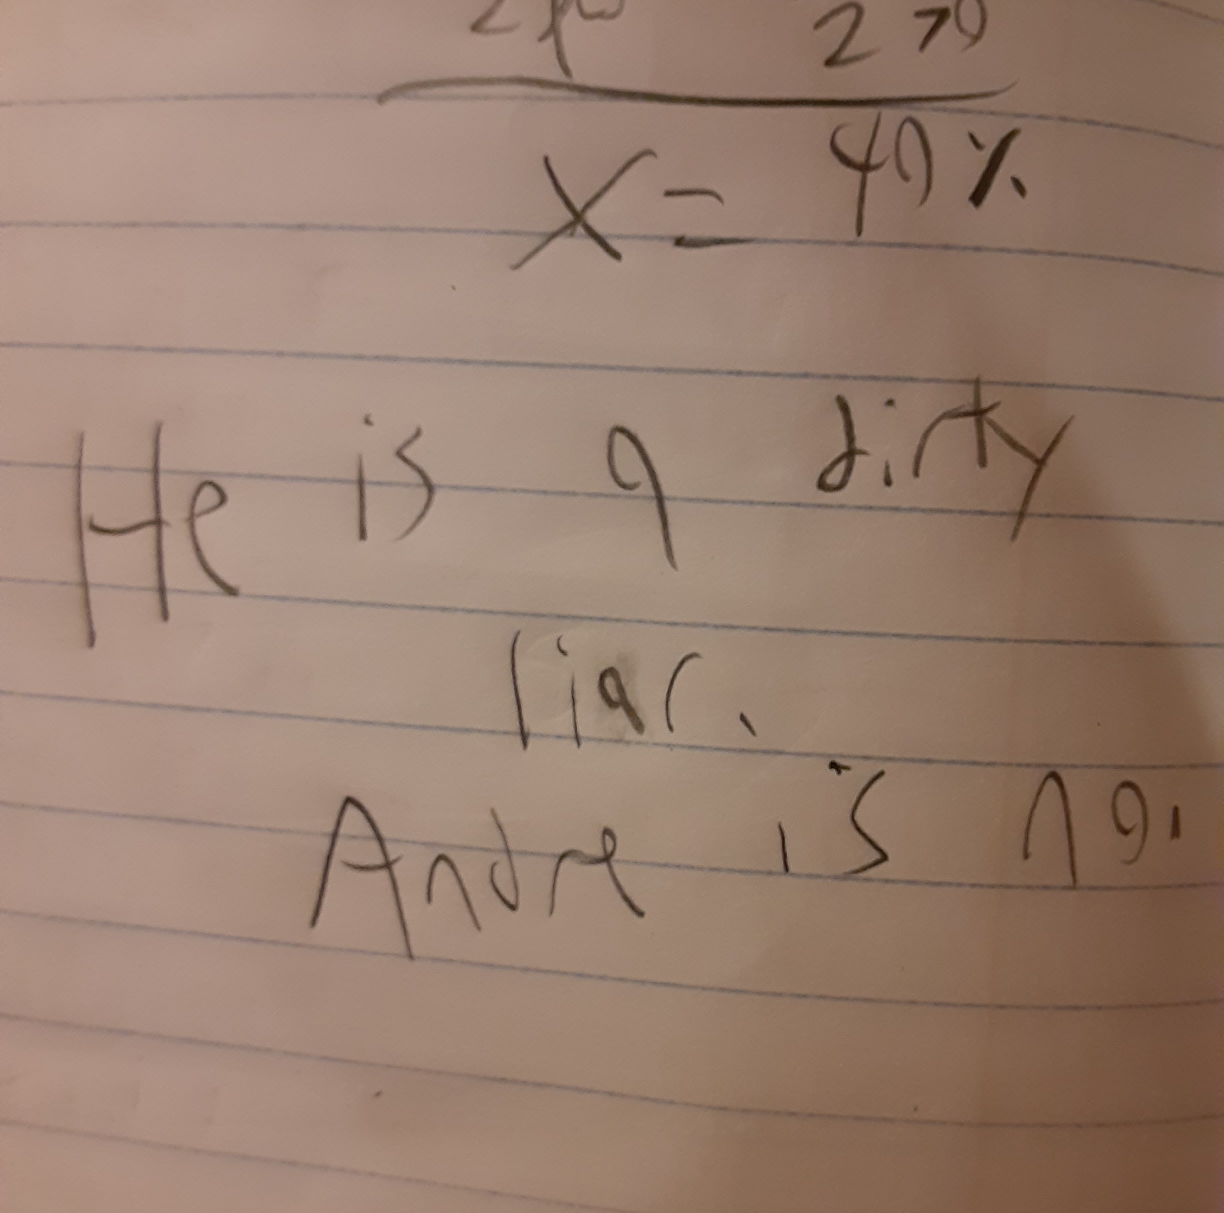 270
X = 40%
He is a dirty
liar.
Andre is